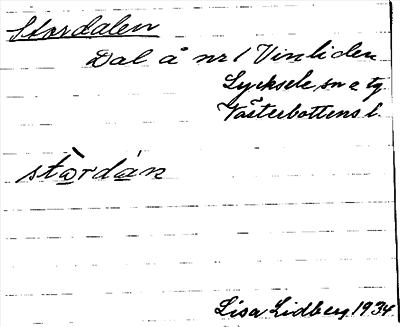 Stordalen
Dal å nr 1 Vinliden
Lycksele sn o tg
Västerbottens l.
stòrdán
Lisa Lidberg 1934